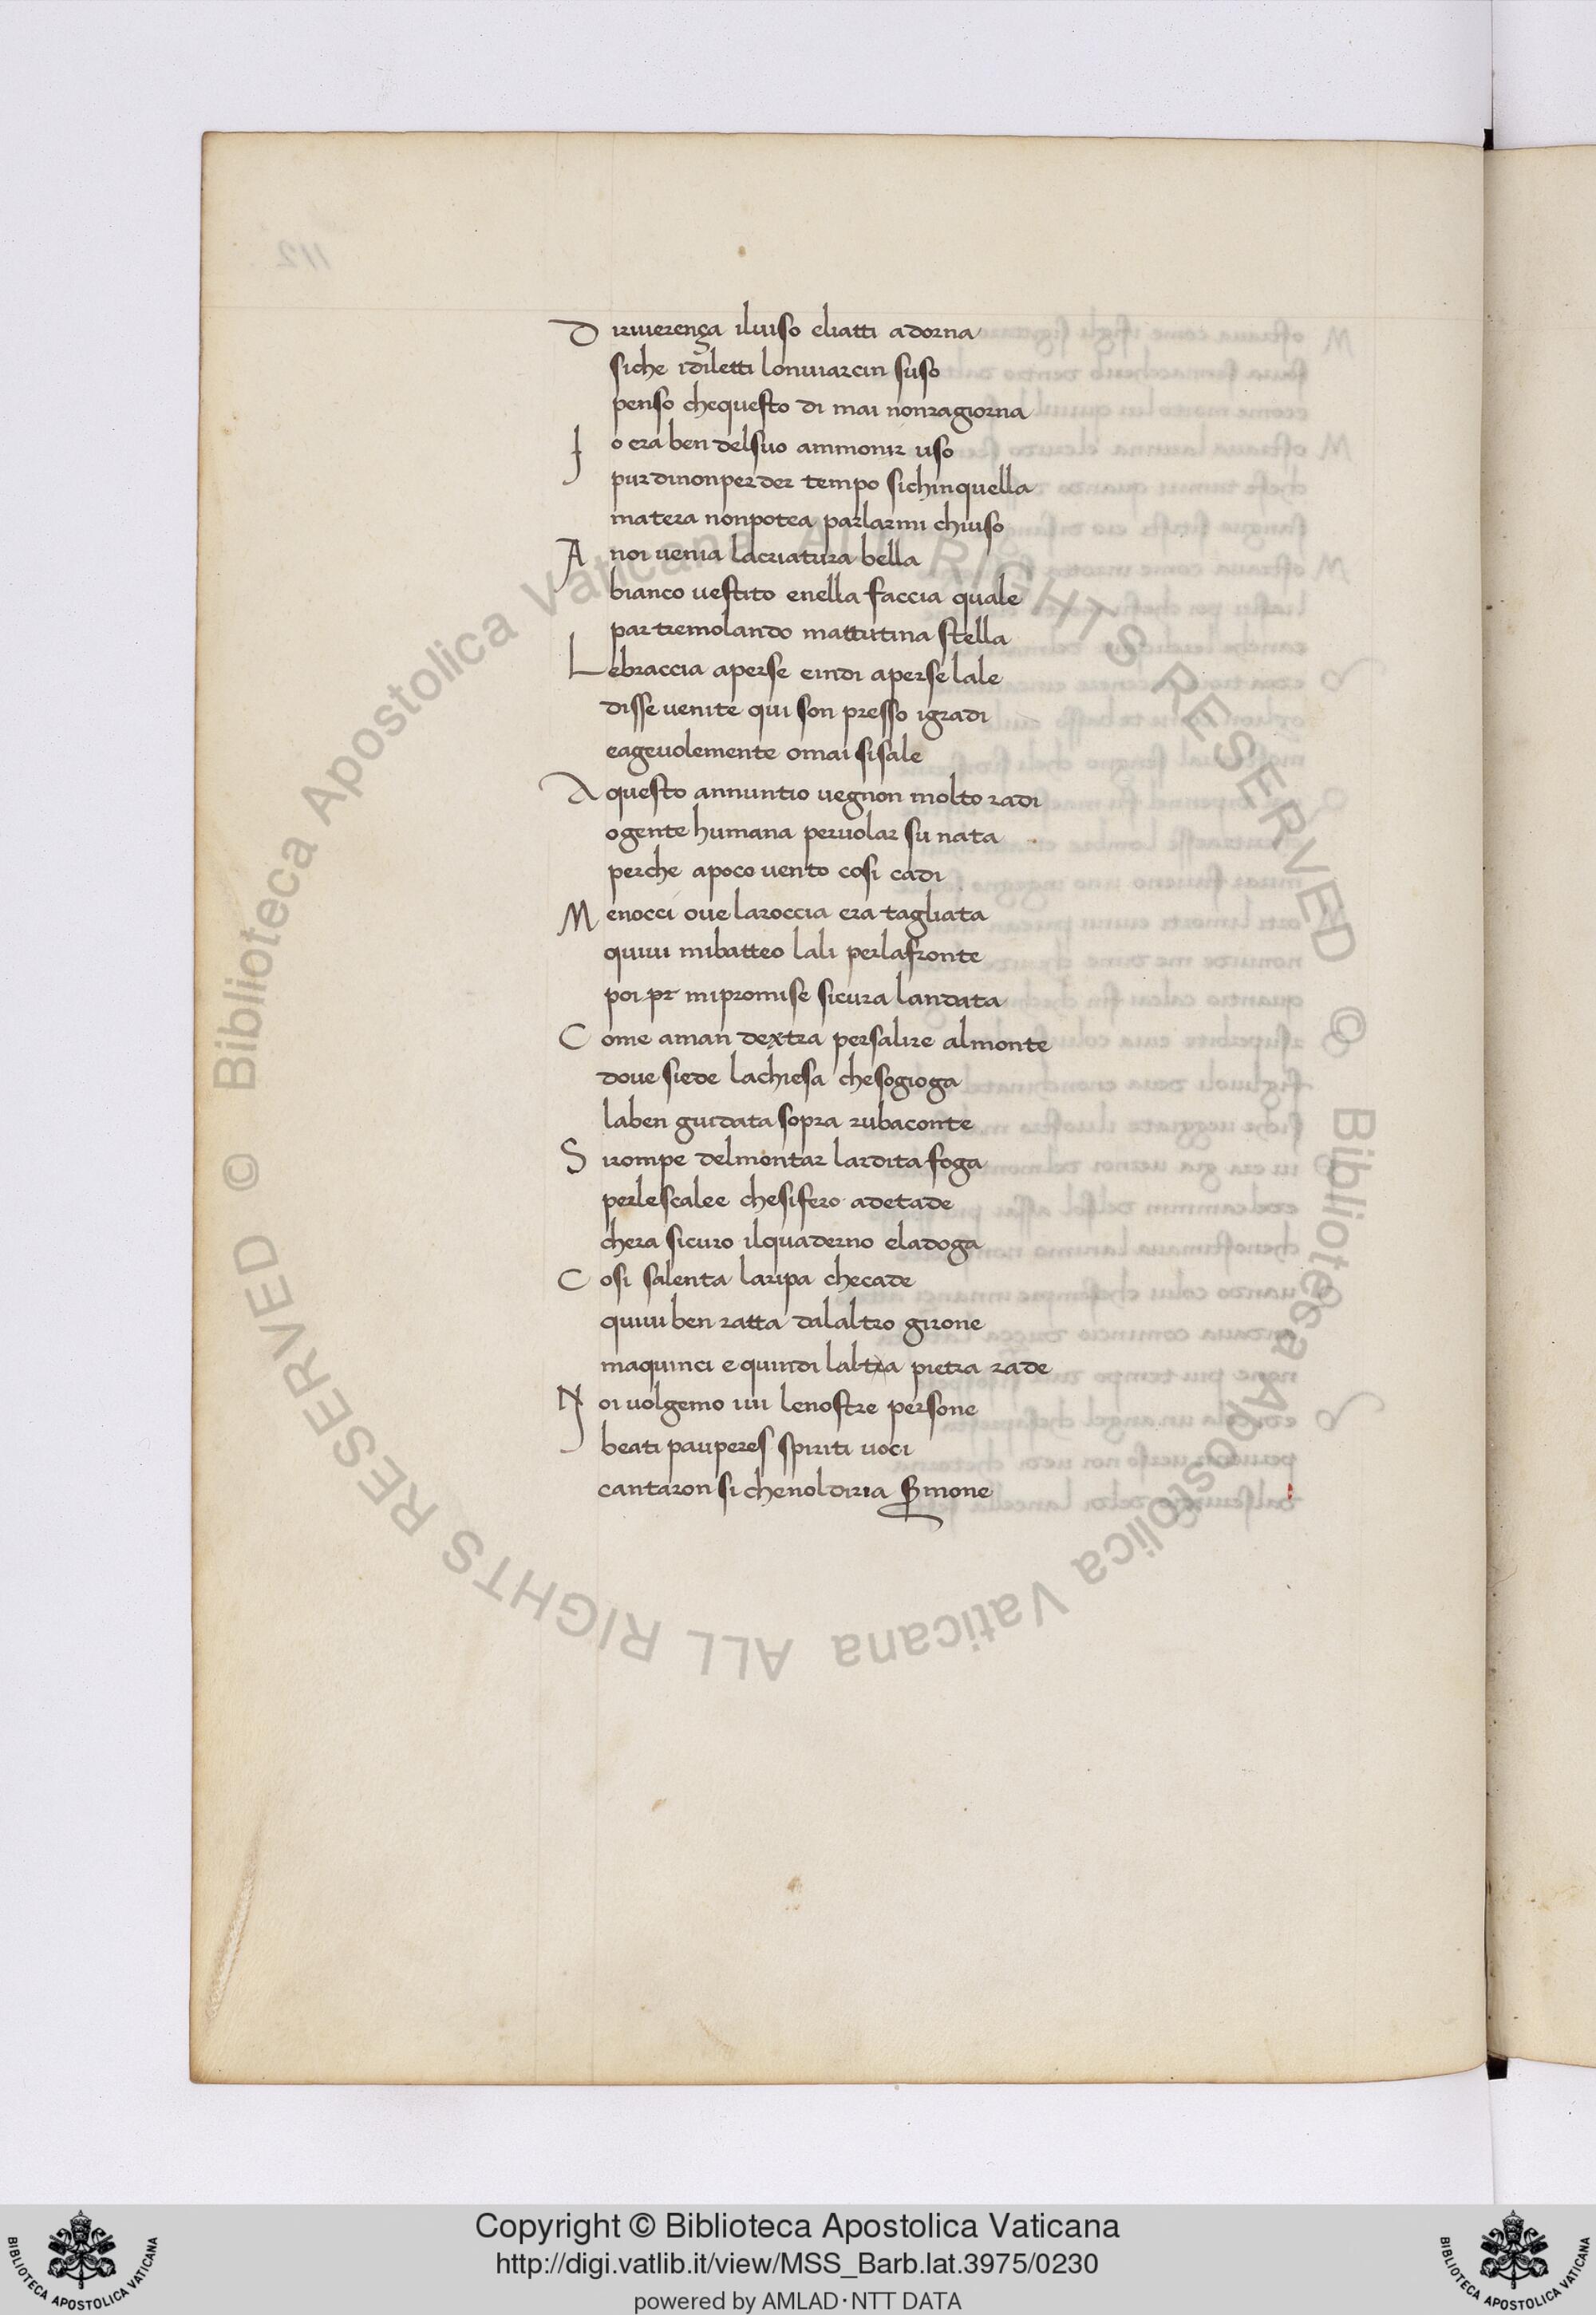 D iriuerença iluiso eliatti adorna
siche idiletti lonuiarcin suso
penso chequesto di mai nonragiorna
I o era ben delsuo ammonir uso
pur dinonperder tempo sichinquella
matera nonpotea parlarmi chiuso
A noi uenia lacriatura bella
bianco uestito enella faccia quale
par tremolando mattutina stella
L ebraccia aperse eindi aperse lale
disse uenite qui son presso igradi
eageuolemente omai sisale
A questo annuntio uegnon molto radi
ogente humana peruolar su nata
perche apoco uento cosi cadi
M enocci oue laroccia era tagliata
quiui mibatteo lali perlafronte
poi pr mipromise sicura landata
C ome aman dextra persalire almonte
doue siede lachiesa chesogioga
laben guidata sopra rubaconte
S irompe delmontar lardita foga
perlescalee chesifero adetade
chera sicuro ilquaderno eladoga
C osi salenta laripa checade
quiui ben ratta dalaltro girone
maquinci e quindi laltra pietra rade
N oi uolgemo iui lenostre persone
beati pauperes spiriti uoci
cantaron si chenoldiria Smone
© Biblioteca Apostolica Vaticana ALL RIGHTS RESERVED © Biblioteca Apostolica Vaticana ALL RIGHTS RESERVED
Copyright © Biblioteca Apostolica Vaticana
http://digi.vatlib.it/view/MSS_Barb.lat.3975/0230
powered by AMLAD·NTT DATA
BIBLIOTECA APOSTOLICA VATICANA
BIBLIOTECA APOSTOLICA VATICANA